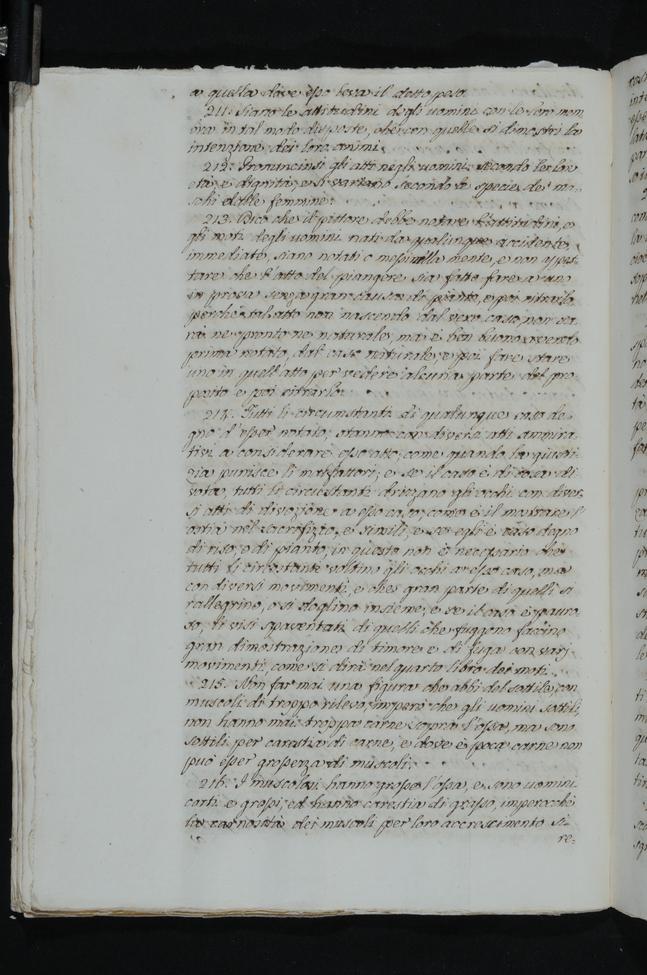 a quella dove esso leva il detto peso.
211. Siano le attitudini degli uomini con le loro mem
bra in tal modo disposte, che con quelle si dimostri la
intenzione dei loro animi.
212. Pronuncinsi gli atti negli uomini secondo le loro
età, e dignità, e si variano secondo le specie, dei ma
schi e delle femmine.
213. Dico che il pittore debbe notare le attitudini, e
gli moti degli uomini nati da qualunque accidente
immediato, siano notati o messi nella mente, e non aspet
tare che l'atto del piangere sia fatto fare a uno
in prova senza gran causa di pianto, e poi ritrarlo
perchè tal atto non nascendo dal vero caso, non sa
rà ne pronto ne naturale, ma è ben buono averlo
prima notato, dal caso naturale, e poi fare stare
uno in quell'atto per vedere alcuna parte del pro
posito e poi ritrarlo.
214. Tutti li circumstanti di qualunque caso de
gno d'esser notato, stanno con diversi atti ammira
tivi a considerare esso atto, come quando la giusti
zia punisce li malfattori, e se il caso è di cosa di
vota, tutti li circustanti drizzano gli occhi con diver
si atti di divozione a esso caso, come è il mostrare l'
ostia nel sacrifizio, e simili, e se egli è caso degno
di riso, o di pianto, in questo non è necessario che
tutti li circostanti voltino gli occhi a esso caso, ma
con diversi movimenti, e che gran parte di quelli si
rallegrino, o si doglino insieme, e se il caso è pauro
so, li visi spaventati di quelli che fuggono faccino
gran dimostrazione di timore e di fuga con varj
movimenti, come si dirà nel quarto libro dei moti.
215. Non far mai una figura che abbi del sottile, con
muscoli di troppo rilevo, imperò che gli uomini sottili,
non hanno mai troppa carne sopra l'ossa, ma sono
sottili per carestia di carne, e dove è poca carne non
può esser grossezza di muscoli.
216. I muscolosi hanno grosse l'ossa, e sono uomini
corti e grossi, ed hanno carestia di grasso, imperochè
le carnosità dei muscoli per loro accrescimento si
re-